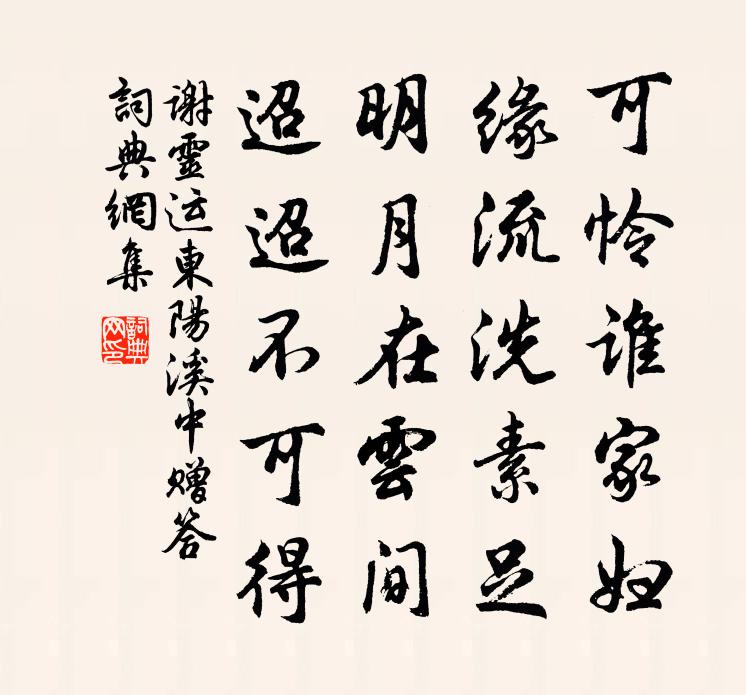 可怜谁家妇
缘流洗素足
明月在雲间
迢迢不可得
谢靈运東陽溪中赠答
詞典網集
詞典网印